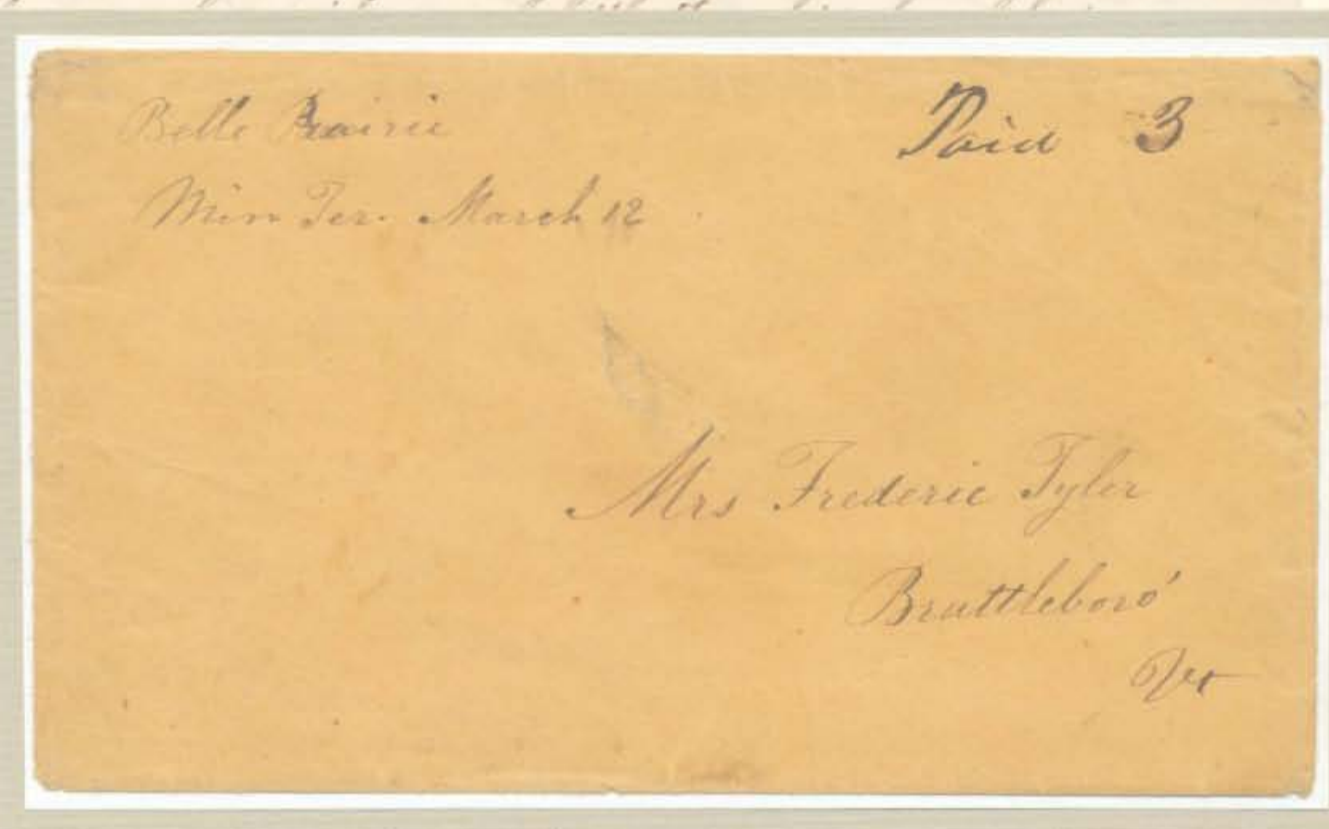 Belle Prairie
Paid 3
Min Ter. March 12
Mrs Frederic Tyler
Brattleboro'
Vt